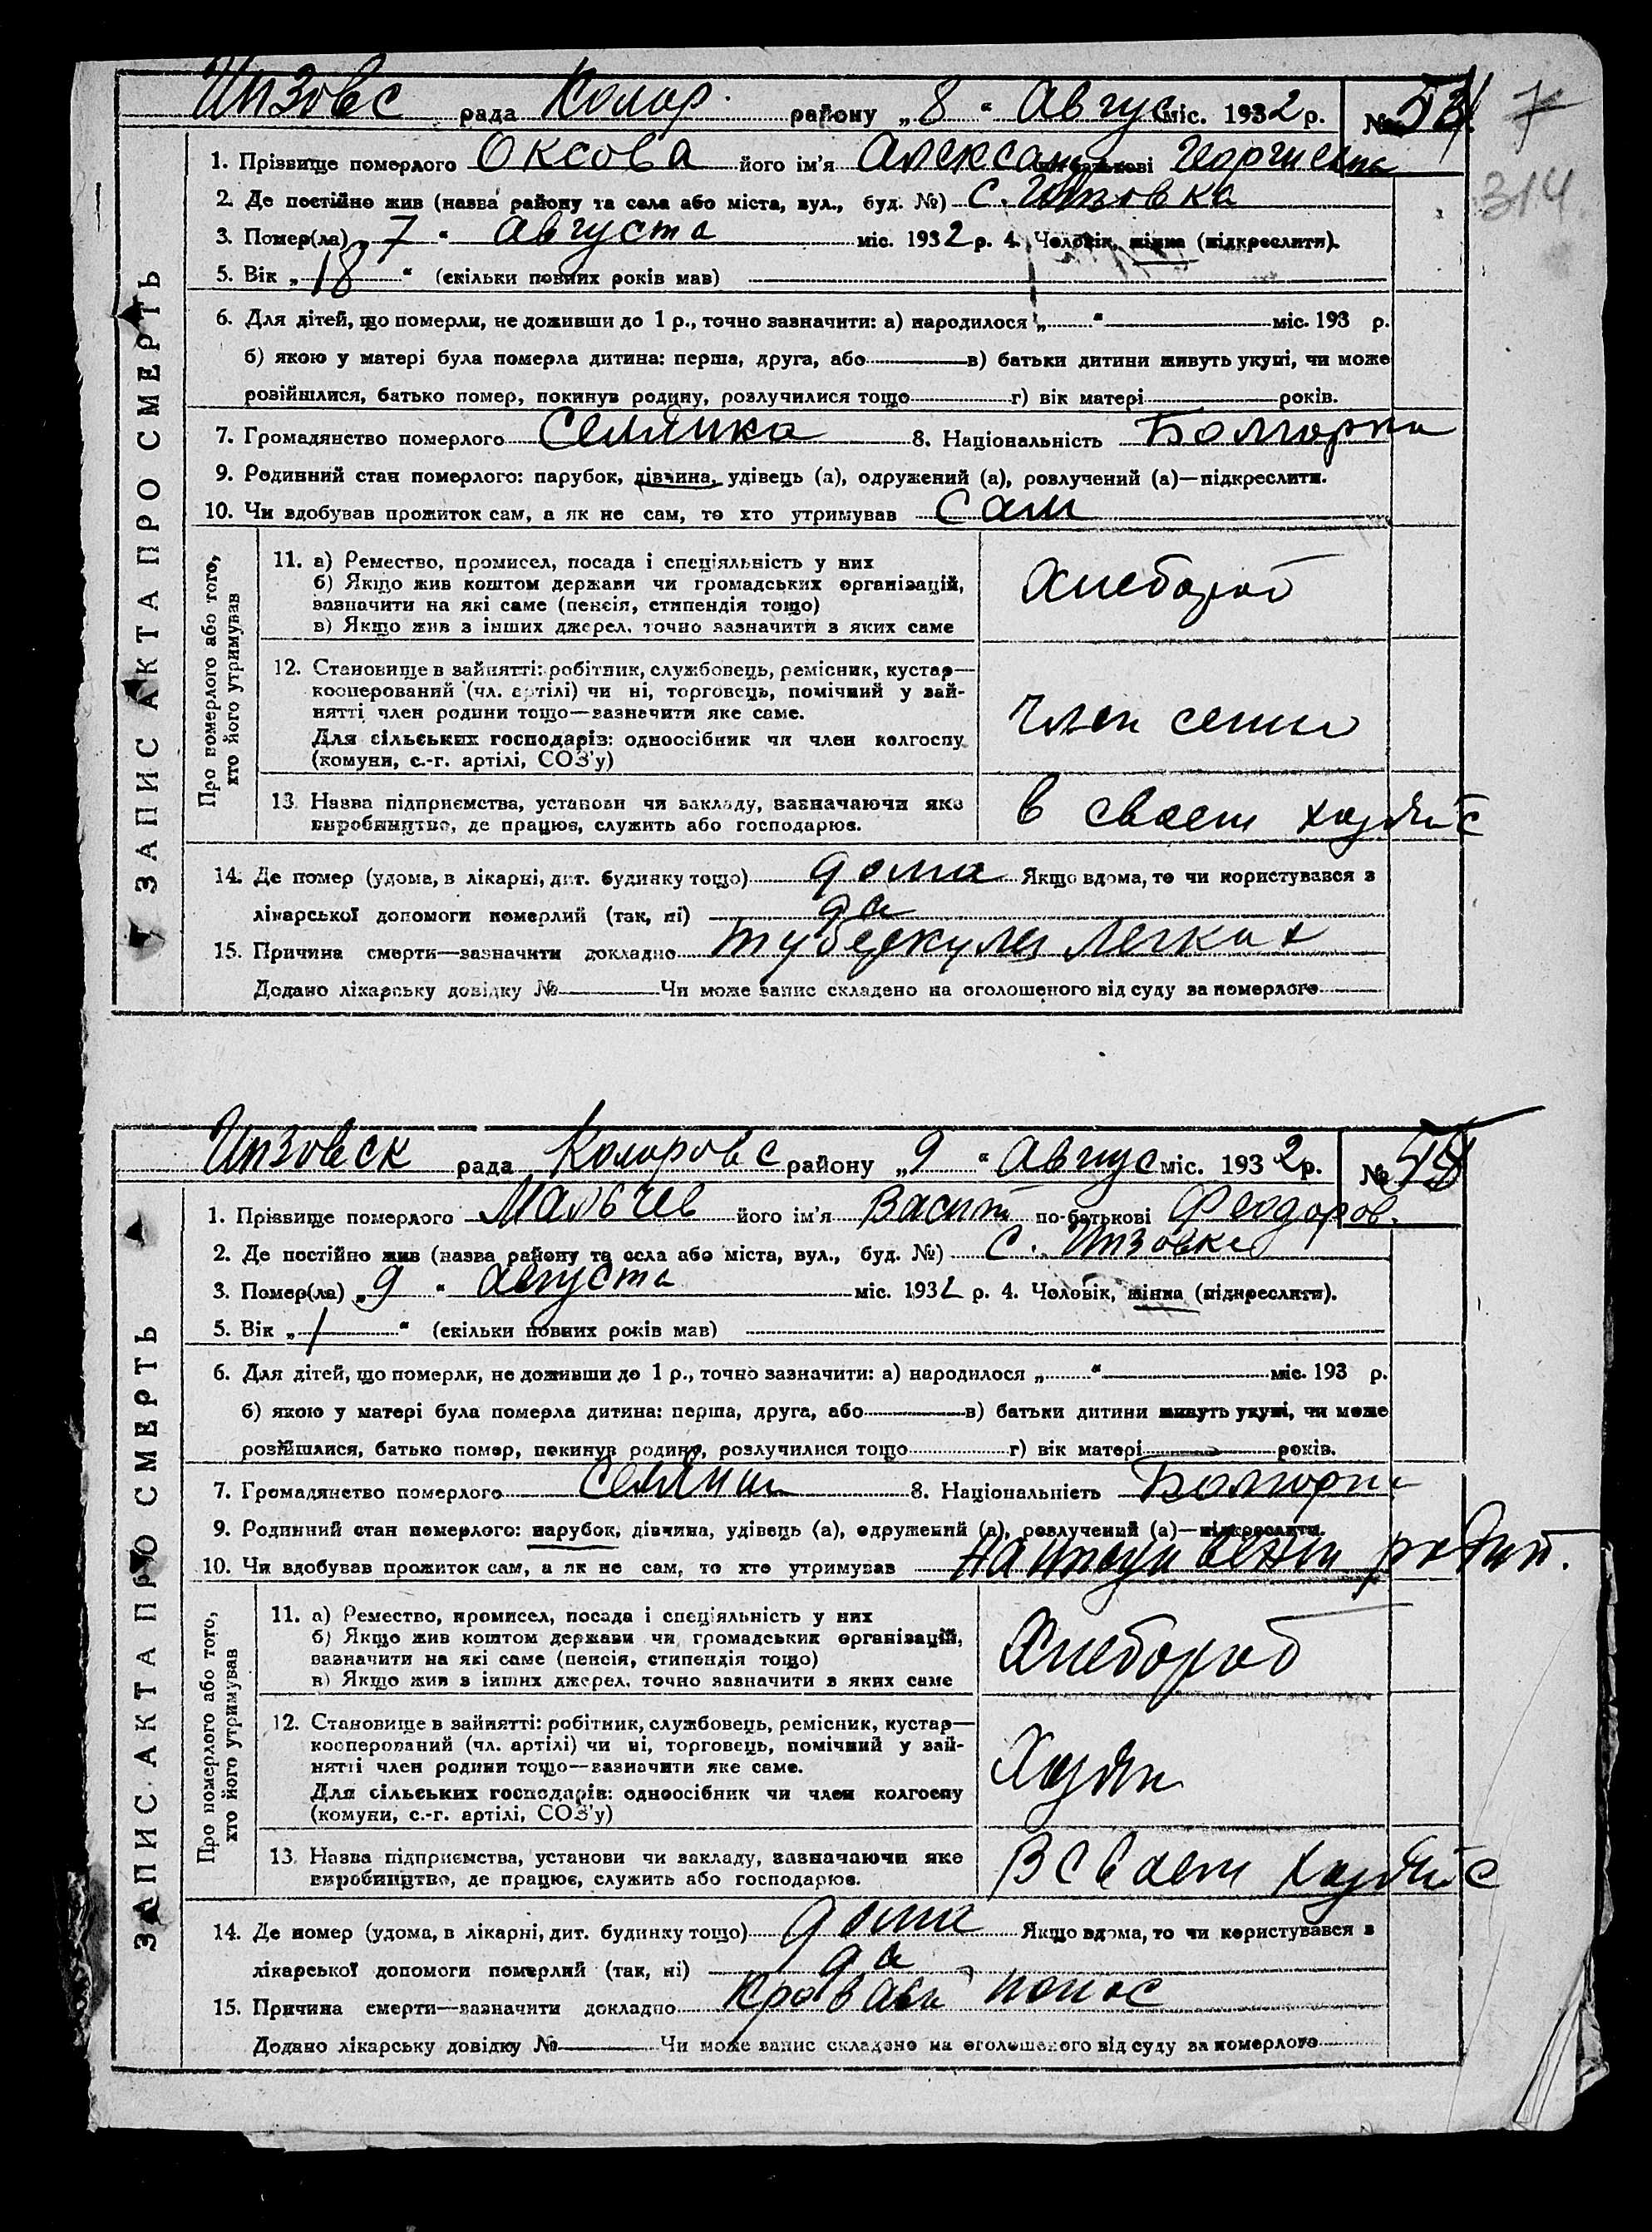 Инзовс рада Колар. району „8“ Август міс. 1932 р. №
7
314
1. Прізвище померлого Оксова його ім'я Александ по-батькові Георгиевна
2. Де постійно жив (назва району та села або міста, вул., буд. №) с. Инзовка
3. Помер(ла) „7“ Августа міс. 1932 р. 4. Чоловік, жінка (підкреслити).
5. Вік „18“ (скільки повних років мав)
6. Для дітей, що померли, не доживши до 1 р., точно зазначити: а) народилося „ “ міс. 193 р.
б) якою у матері була померла дитина: перша, друга, або в) батьки дитини живуть укупі, чи може
розійшлися, батько помер, покинув родину, розлучилися тощо г) вік матері років.
7. Громадянство померлого Селянка 8. Національність Болгарка
9. Родинний стан померлого: парубок, дівчина, удівець (а), одружений (а), розлучений (а)—підкреслити.
10. Чи здобував прожиток сам, а як не сам, то хто утримував Сам
ЗАПИС АКТА ПРО СМЕРТЬ
Про померлого або того, хто його утримував
11. а) Ремество, промисел, посада і спеціяльність у них
б) Якщо жив коштом держави чи громадських організацій,
зазначити на які саме (пенсія, стипендія тощо)
в) Якщо жив з інших джерел, точно зазначити з яких саме
Хлебороб
12. Становище в зайнятті: робітник, службовець, ремісник, кустар—
кооперований (чл. артілі) чи ні, торговець, помічний у зай-
нятті член родини тощо—зазначити яке саме.
Для сільських господарів: одноосібник чи член колгоспу
(комуни, с.-г. артілі, СОЗ'у)
Член семи
13. Назва підприємства, установи чи закладу, зазначаючи яке
виробництво, де працює, служить або господарює.
в своем хозяйс
14. Де помер (удома, в лікарні, дит. будинку тощо) дома Якщо вдома, то чи користувався з
лікарської допомоги померлий (так, ні) да
15. Причина смерти—зазначити докладно туберкулез легких
Додано лікарську довідку № Чи може запис складено на оголошеного від суду за померлого
Инзовск рада Коларовс району „9“ Август міс. 1932 р. №
1. Прізвище померлого Мальчев його ім'я Васил по-батькові Феодоров.
2. Де постійно жив (назва району та села або міста, вул., буд. №) С. Инзовка
3. Помер(ла) „9“ августа міс. 1932 р. 4. Чоловік, жінка (підкреслити).
5. Вік „1“ (скільки повних років мав)
6. Для дітей, що померли, не доживши до 1 р., точно зазначити: а) народилося „ “ міс. 193 р.
б) якою у матері була померла дитина: перша, друга, або в) батьки дитини живуть укупі, чи може
розійшлися, батько помер, покинув родину, розлучилися тощо г) вік матері років.
7. Громадянство померлого Селянин 8. Національність Болгарин
9. Родинний стан померлого: парубок, дівчина, удівець (а), одружений (а), розлучений (а)—підкреслити.
10. Чи здобував прожиток сам, а як не сам, то хто утримував На иждивении родит.
ЗАПИС АКТА ПРО СМЕРТЬ
Про померлого або того, хто його утримував
11. а) Ремество, промисел, посада і спеціяльність у них
б) Якщо жив коштом держави чи громадських організацій,
зазначити на які саме (пенсія, стипендія тощо)
в) Якщо жив з інших джерел, точно зазначити з яких саме
Хлебороб
12. Становище в зайнятті: робітник, службовець, ремісник, кустар—
кооперований (чл. артілі) чи ні, торговець, помічний у зай-
нятті член родини тощо—зазначити яке саме.
Для сільських господарів: одноосібник чи член колгоспу
(комуни, с.-г. артілі, СОЗ'у)
Хозяин
13. Назва підприємства, установи чи закладу, зазначаючи яке
виробництво, де працює, служить або господарює.
В своем хозяйс
14. Де помер (удома, в лікарні, дит. будинку тощо) дома Якщо вдома, то чи користувався з
лікарської допомоги померлий (так, ні) да
15. Причина смерти—зазначити докладно Кровавый понос
Додано лікарську довідку № Чи може запис складено на оголошеного від суду за померлого